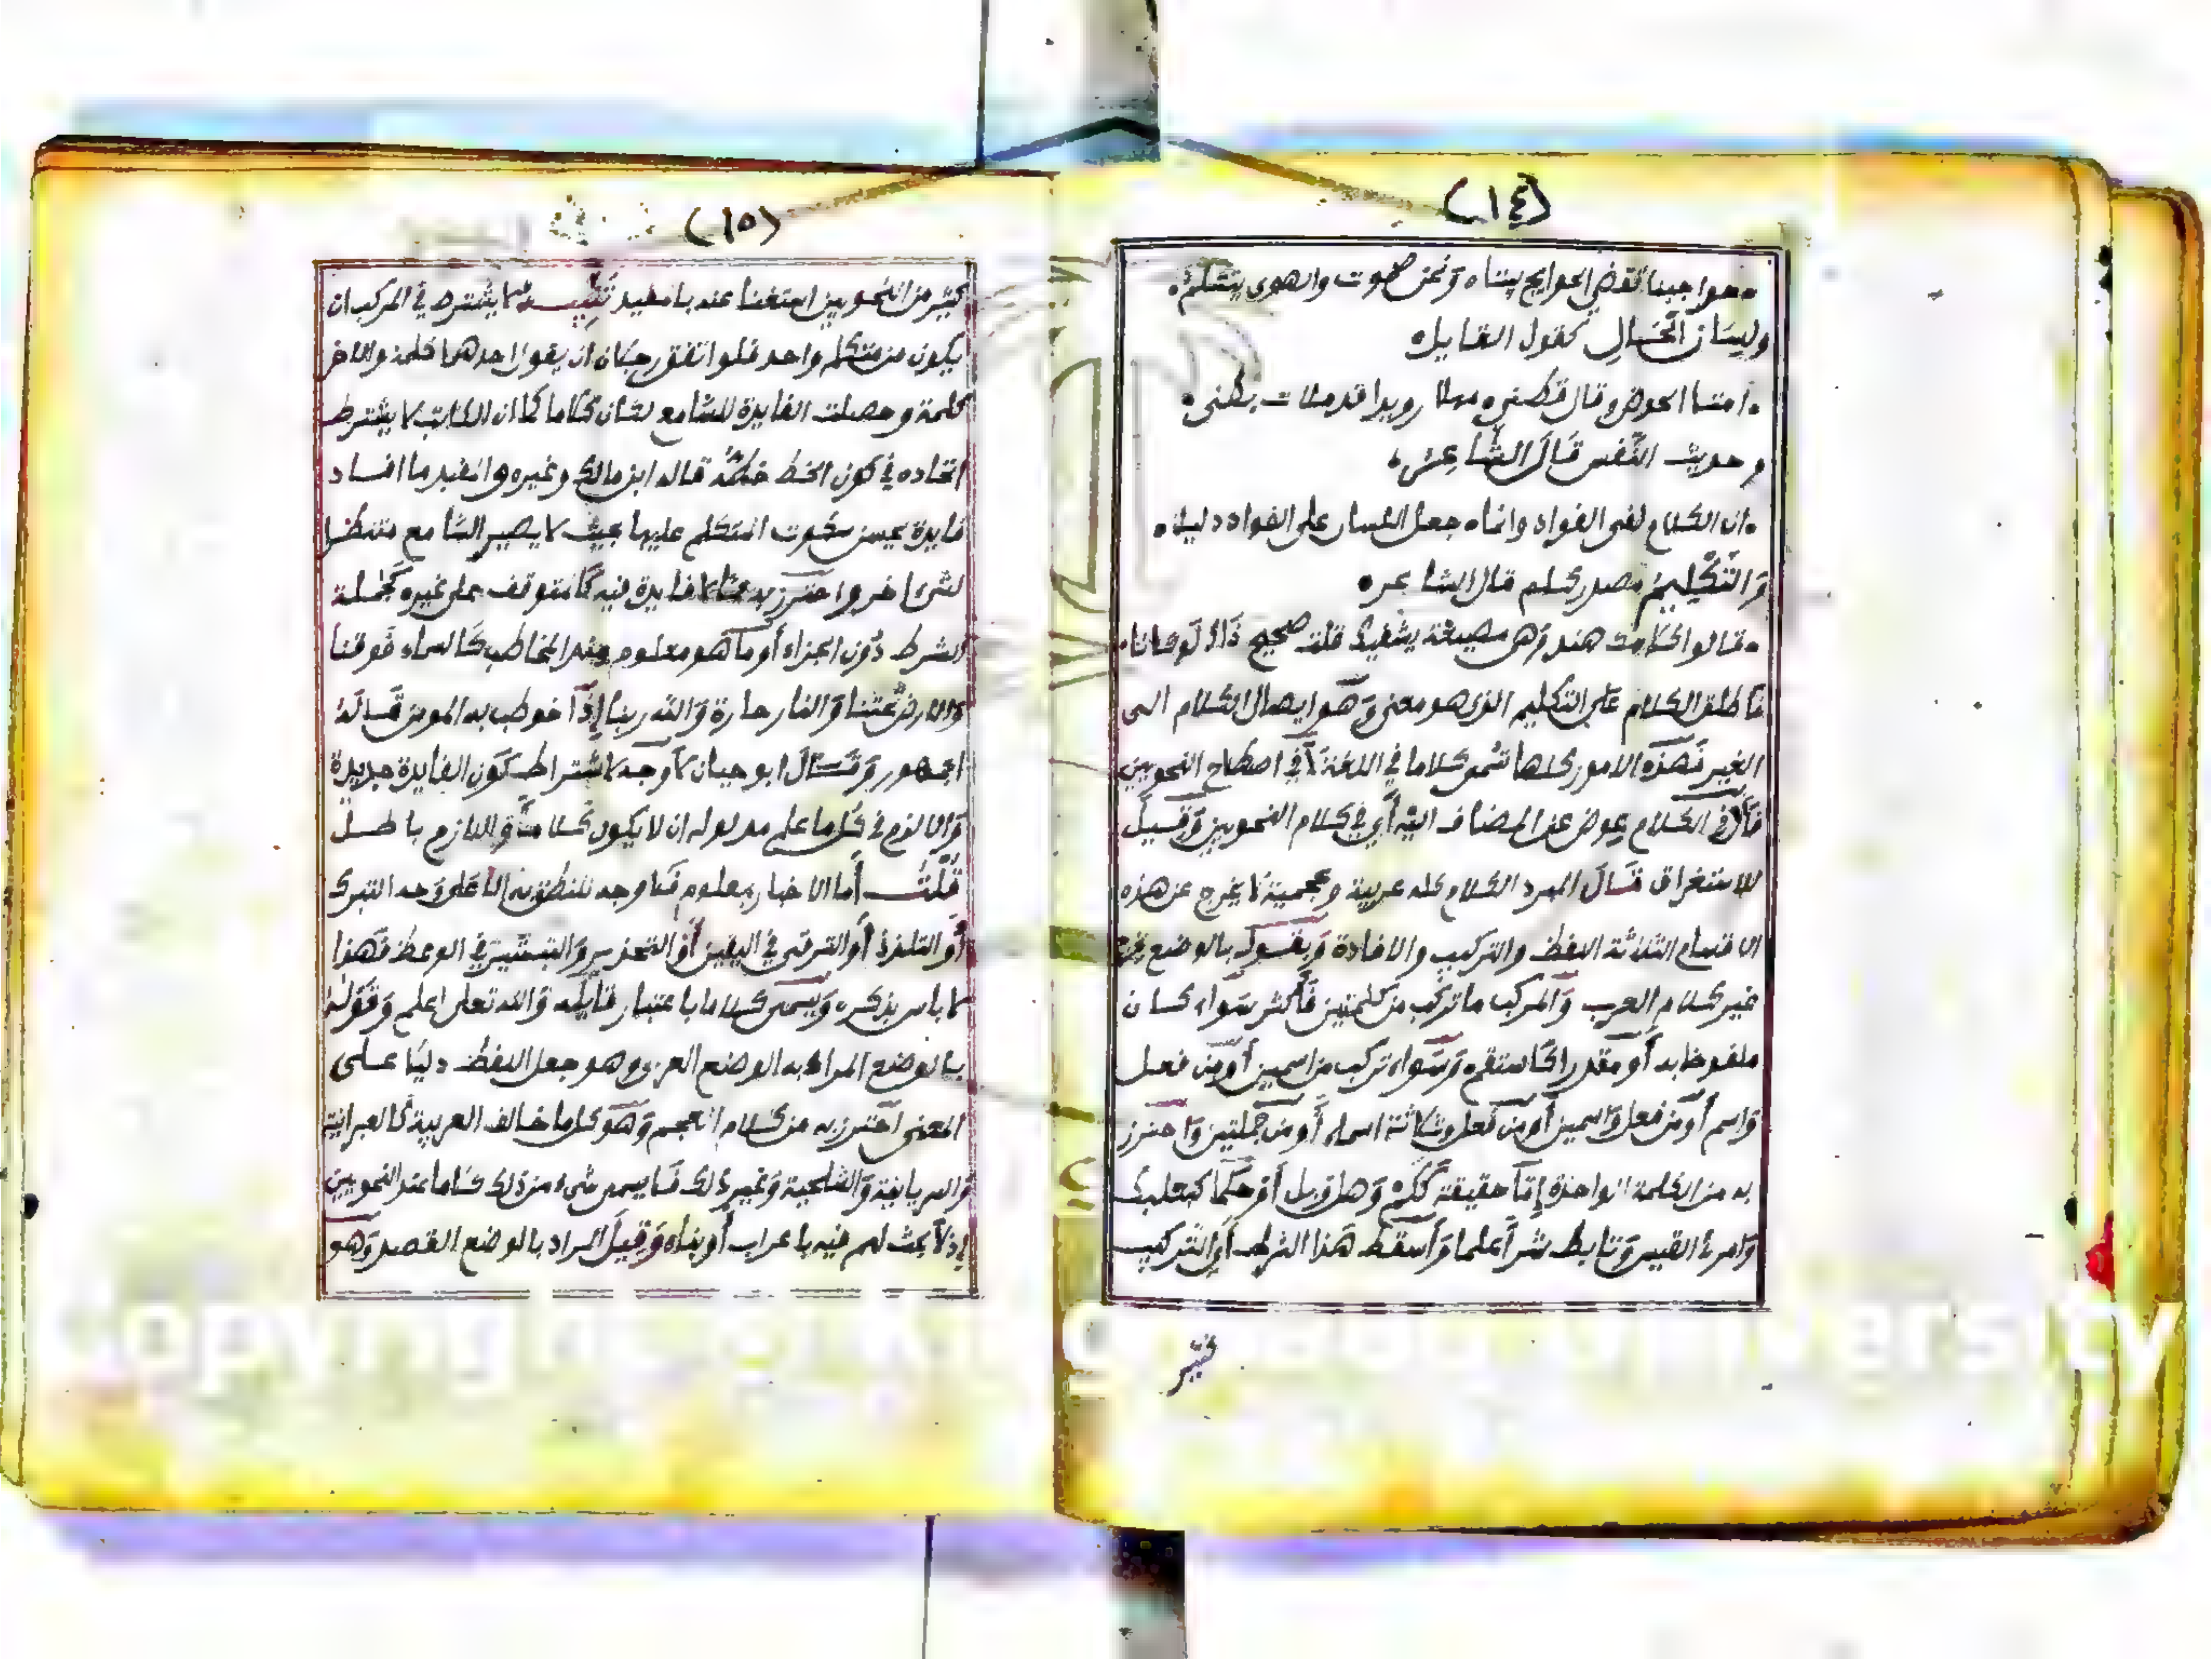 (١٤)
حواجبنا تقضي الحوايج بيننا ونحن صموت والهوى يتكلم
ولسان الحال كقول القايل
امتلا الحوض وقال قطني مهلا رويدا قد ملات بطني
وحديث النفس قال الشاعر
ان الكلام لفي الفواد وانما جعل اللسان على الفواد دليلا
والتكليم مصدر كلم قال الشاعر
قالوا كلامك هند وهي مصيغة يشفيك قلت صحيح ذاك لو كانا
فاطلق الكلام على التكليم الذي هو معنى وهو ايصال الكلام الى
الغير فهذه الامور كلها تسمى كلاما في اللغة لا في اصطلاح النحويين
فأل في الكلام عوض عن المضاف اليه أي في كلام النحويين وقيل
للاستغراق قال المبرد الكلام كله عربية وعجمية لا يخرج عن هذه
الاقسام الثلاثة اللفظ والتركيب والافادة وبقولك بالوضع يخرج
غير كلام العرب والمركب ما تركب من كلمتين فأكثر سواء كان
ملفوظا به أو مقدرا كاستقم وسواء تركب من اسمين أو من فعل
واسم أو من فعل واسمين أو من فعل وثلاثة اسماء أو من جملتين واحترز
به من الكلمة الواحدة إما حقيقة ككم وهل وبل أو حكما كبعلبك
وامرئ القيس وتابط شرا علما وأسقط هذا الشرط أي التركيب
كثير
(١٥)
كثير من النحويين استغنا عنه بالمفيد تنبيه لا يشترط في المركب ان
يكون من متكلم واحد فلو اتفق رجلان ان يقول احدهما كلمة والاخر
كلمة وحصلت الفايدة للسامع لكان كلاما كما ان الكاتب لا يشترط
اتحاده في كون الخط خطا قاله ابن مالك وغيره والمفيد ما افاد
فايدة يحسن سكوت المتكلم عليها بحيث لا يصير السامع منتظرا
لشيء اخر واحترز به عما لا فايدة فيه كالمتوقف على غيره كجملة
الشرط دون الجزاء أو ما هو معلوم عند المخاطب كالسماء فوقنا
والارض تحتنا والنار حارة والله ربنا إذا خوطب به المومن قاله
الجمهور وقال ابو حيان لا وجه لاشتراط كون الفايدة جديدة
والا لزم في كل ما علم مدلوله ان لا يكون كلاما واللازم باطل
قلت أما الاخبار بمعلوم فلا وجه للنطق به إلا على وجه التبرك
أو التلذذ أو الترقي في اليقين أو التحذير والتبشير في الوعظ فهذا
لا باس بذكره ويسمى كلاما باعتبار قايله والله تعلى اعلم وقوله
بالوضع المراد به الوضع العربي وهو جعل اللفظ دليلا على
المعنى احترز به من كلام العجم وهو كل ما خالف العربية كالعبرانية
والسريانية والشلحية وغير ذلك فلا يسمى شيء من ذلك كلاما عند النحويين
إذ لا بحث لهم فيه باعراب أو بناء وقيل المراد بالوضع القصد وهو
Copyright © King Saud University